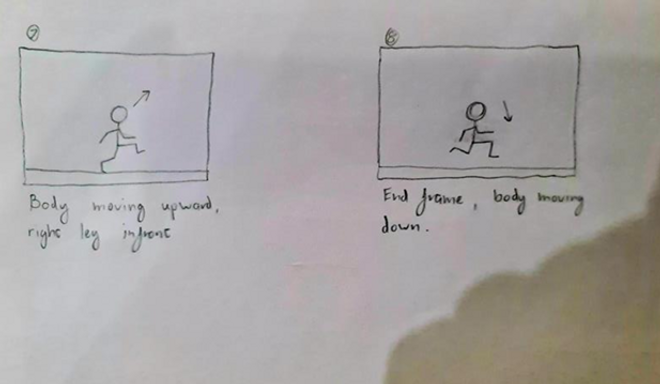 ⑦
Body moving upward,
right leg infront
⑧
End frame, body moving
down.